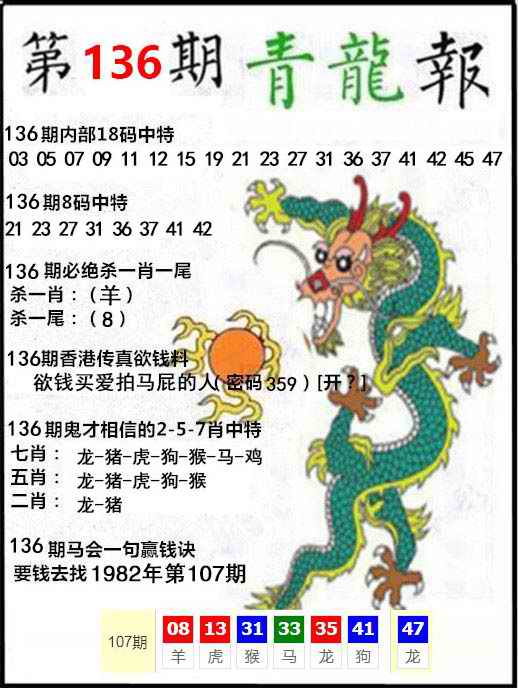 第136期青龍報
136期内部18码中特
03 05 07 09 11 12 15 19 21 23 27 31 36 37 41 42 45 47
136期8码中特
21 23 27 31 36 37 41 42
136期必绝杀一肖一尾
杀一肖：（羊）
杀一尾：（8）
136期香港传真欲钱料
欲钱买爱拍马屁的人(密码359)[开?]
136期鬼才相信的2-5-7肖中特
七肖： 龙-猪-虎-狗-猴-马-鸡
五肖： 龙-猪-虎-狗-猴
二肖： 龙-猪
136期马会一句赢钱诀
要钱去找1982年第107期
107期 08 13 31 33 35 41 47
羊 虎 猴 马 龙 狗 龙